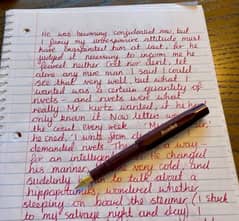 He was becoming confidential now, but
I fancy my unresponsive attitude must
have exasperated him at last, for he
judged it necessary to inform me he
feared neither God nor devil, let
alone any mere man. I said I could
see that very well, but what I
wanted was a certain quantity of
rivets - and rivets were what
really Mr. Kurtz wanted, if he had
only known it. Now letters went to
the coast every week.
he cried, 'I write from
demanded rivets. There was a way -
for an intelligent He changed
his manner very cold, and
suddenly began to talk about a
hippopotamus; wondered whether
sleeping on board the steamer (I stuck
to my salvage night and day)